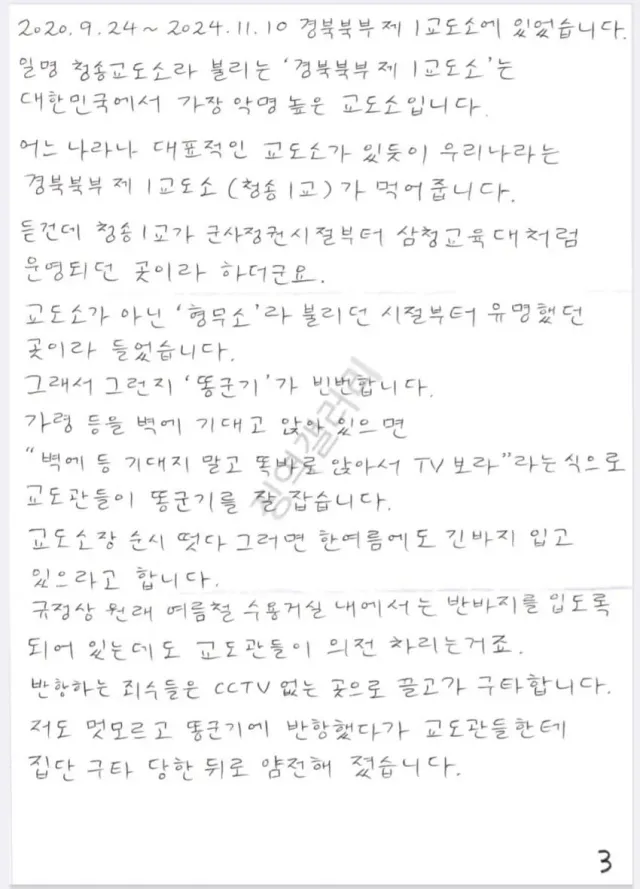 2020.9.24~2024.11.10 경북북부제1교도소에 있었습니다.
일명 청송교도소라 불리는 '경북북부제1교도소'는
대한민국에서 가장 악명 높은 교도소입니다.
어느 나라나 대표적인 교도소가 있듯이 우리나라는
경북북부제1교도소(청송1교)가 먹어줍니다.
듣건데 청송1교가 군사정권시절부터 삼청교육대처럼
운영되던 곳이라 하더군요.
교도소가 아닌 '형무소'라 불리던 시절부터 유명했던
곳이라 들었습니다.
그래서 그런지 '똥군기'가 빈번합니다.
가령 등을 벽에 기대고 앉아 있으면
"벽에 등 기대지 말고 똑바로 앉아서 TV 보라"라는 식으로
교도관들이 똥군기를 잘 잡습니다.
교도소장 순시 떳다 그러면 한여름에도 긴바지 입고
있으라고 합니다.
규정상 원래 여름철 수용거실 내에서는 반바지를 입도록
되어 있는데도 교도관들이 의전 차리는거죠.
반항하는 죄수들은 CCTV 없는 곳으로 끌고가 구타합니다.
저도 멋모르고 똥군기에 반항했다가 교도관들한테
집단 구타 당한 뒤로 얌전해 졌습니다.
3